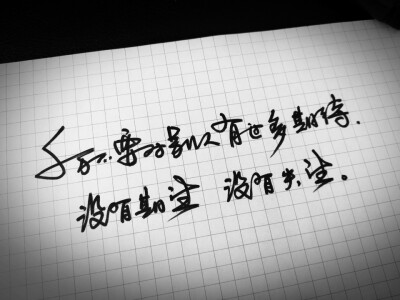 千万不要对别人有过多期待.
没有期望 没有失望。